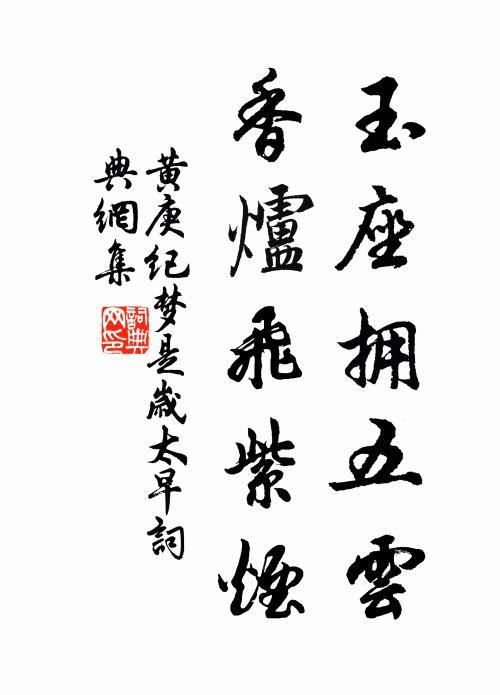 玉座拥五雲
香爐飛紫煙
黄庚纪梦是歲太早詞
典網集
詞典
网印